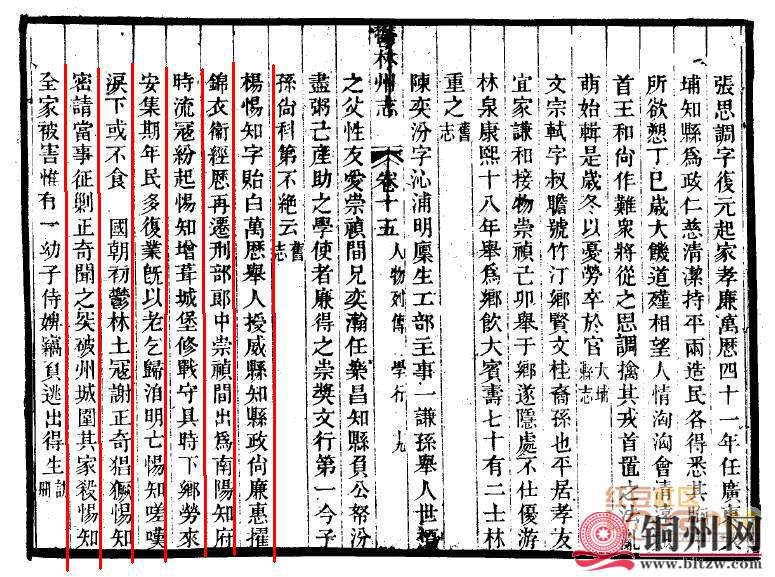 張思調字復元起家孝廉萬歷四十一年任廣東
埔知縣爲政仁慈清潔持平兩造民各得悉其
所欲懇丁巳歲大饑道殣相望人情洶洶會清
首王和尚作難衆將從之思調擒其戎首置之法
萌始輯是歲冬以憂勞卒於官大埔縣志
文宗軾字叔瞻號竹汀鄉賢文桂裔孫也平居孝友
宜家謙和接物崇禎己卯舉于鄉遂隱處不仕優游
林泉康熙十八年舉爲鄉飲大賓壽七十有二士林
重之舊志
陳奕汾字沁浦明廩生工部主事一謙孫舉人世
鬱林州志 卷十五 人物列傳 學行 十九
之父性友愛崇禎間兄奕瀚任樂昌知縣負公帑汾
盡粥己產助之學使者廉得之崇奬文行第一今子
孫尚科第不絕云舊志
楊惕知字貽白萬歷舉人授威縣知縣政尚廉惠擢
錦衣衛經歷再遷刑部郎中崇禎間出爲南陽知府
時流冦紛起惕知增葺城堡修戰守具時下鄉勞來
安集期年民多復業旣以老乞歸洎明亡惕知嗟嘆
淚下或不食 國朝初鬱林土冦謝正奇猖獗惕知
密請當事征剿正奇聞之突破州城圍其家殺惕知
全家被害惟有一幼子侍婢竊負逃出得生訪冊
铜州网
www.bltzw.com